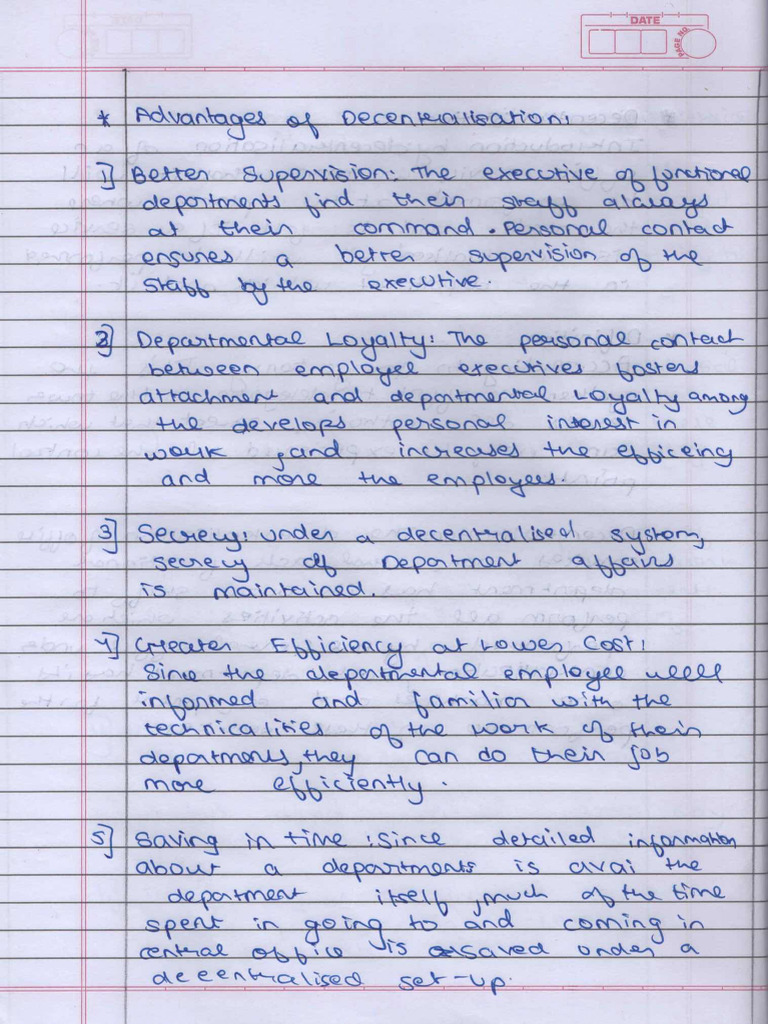 DATE
PAGE NO
* Advantages of Decentralisation:
1] Better Supervision: The executive of functional
departments find their staff always
at their command. Personal contact
ensures a better supervision of the
staff by the executive.
2] Departmental Loyalty: The personal contact
between employee executives fosters
attachment and departmental Loyalty among
the develops personal interest in
work, and increases the efficeing
and more the employees.
3] Secrecy: under a decentralised system,
secrecy of Department affairs
is maintained.
4] Greater Efficiency at Lower Cost:
Since the departmental employee well
informed and familiar with the
technicalities of the work of their
departments, they can do their job
more efficiently.
5] Saving in time: Since detailed information
about a departments is avai the
department itself, much of the time
spent in going to and coming in
central office is saved under a
decentralised set-up.